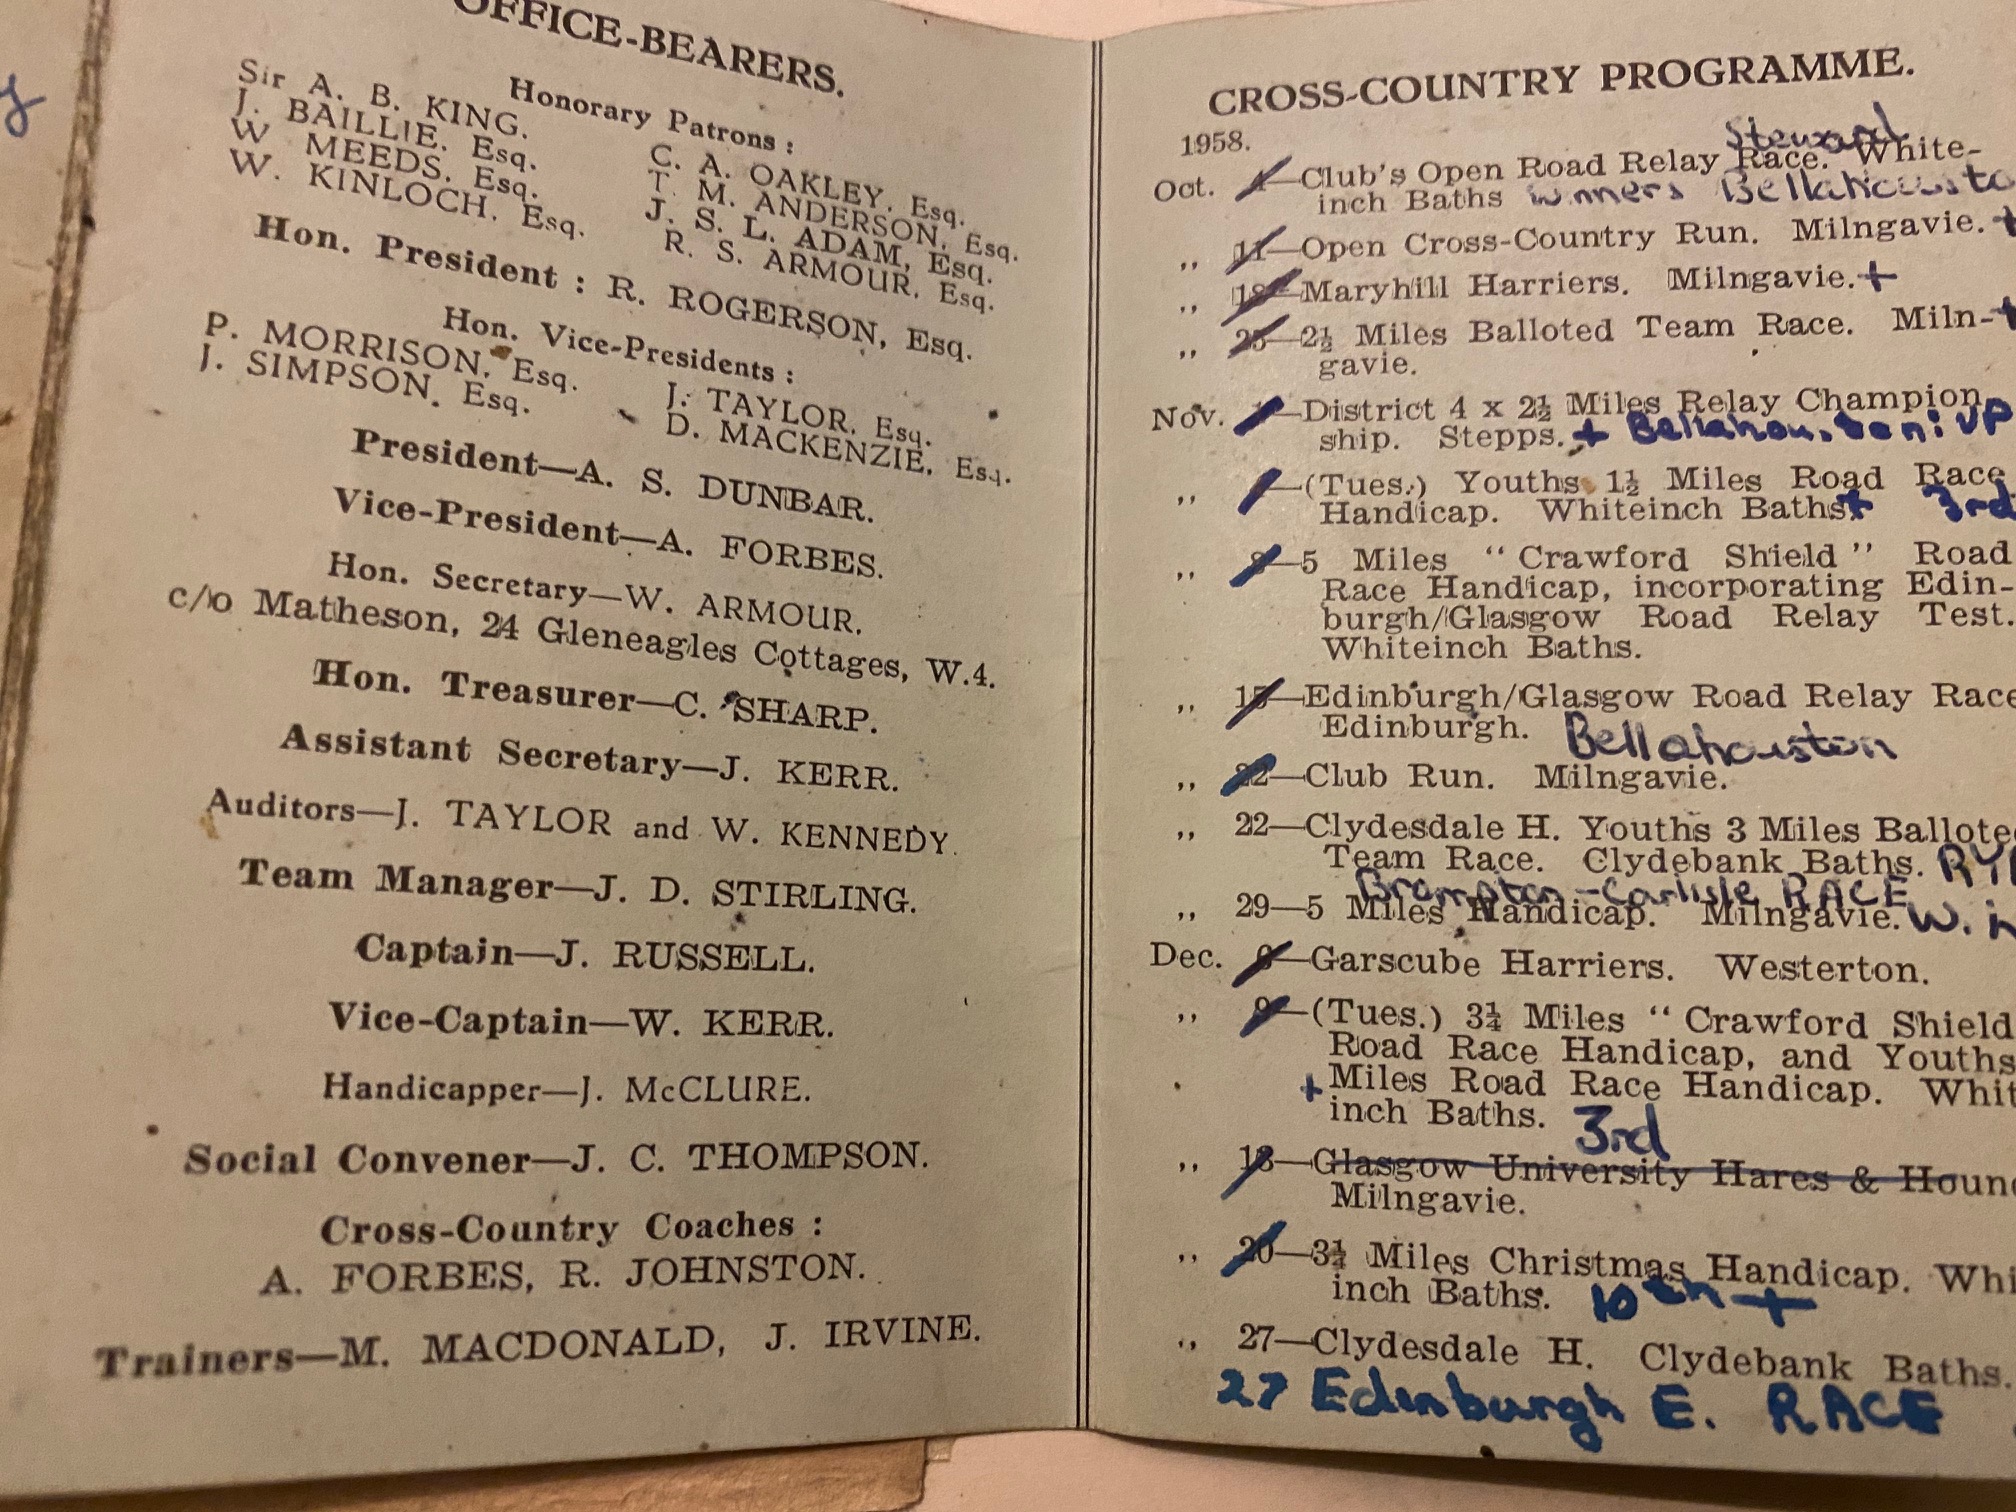 OFFICE-BEARERS.
Honorary Patrons :
Sir A. B. KING.
J. BAILLIE. Esq.
W MEEDS. Esq.
W. KINLOCH. Esq.
C. A. OAKLEY. Esq.
T. M. ANDERSON. Esq.
J. S. L. ADAM, Esq.
R. S. ARMOUR. Esq.
Hon. President : R. ROGERSON, Esq.
Hon. Vice-Presidents :
P. MORRISON. Esq.
J. SIMPSON. Esq.
J. TAYLOR. Esq.
D. MACKENZIE. Esq.
President—A. S. DUNBAR.
Vice-President—A. FORBES.
Hon. Secretary—W. ARMOUR.
c/o Matheson, 24 Gleneagles Cottages, W.4.
Hon. Treasurer—C. SHARP.
Assistant Secretary—J. KERR.
Auditors—J. TAYLOR and W. KENNEDY.
Team Manager—J. D. STIRLING.
Captain—J. RUSSELL.
Vice-Captain—W. KERR.
Handicapper—J. McCLURE.
Social Convener—J. C. THOMPSON.
Cross-Country Coaches :
A. FORBES, R. JOHNSTON.
Trainers—M. MACDONALD, J. IRVINE.
CROSS-COUNTRY PROGRAMME.
1958.
Steward
Oct. 4—Club's Open Road Relay Race. White-
inch Baths winners Bellahousto
,, 11—Open Cross-Country Run. Milngavie. +
,, 18—Maryhill Harriers. Milngavie. +
,, 25—2½ Miles Balloted Team Race. Miln- +
gavie.
Nov. 1—District 4 x 2½ Miles Relay Champion
ship. Stepps. + Bellahouston: VP
,, —(Tues.) Youths 1½ Miles Road Race
Handicap. Whiteinch Baths + 3rd
,, 8—5 Miles "Crawford Shield" Road
Race Handicap, incorporating Edin-
burgh/Glasgow Road Relay Test.
Whiteinch Baths.
,, 15—Edinburgh/Glasgow Road Relay Race
Edinburgh. Bellahouston
,, 22—Club Run. Milngavie.
,, 22—Clydesdale H. Youths 3 Miles Ballote
Team Race. Clydebank Baths.
Brampton-Carlisle RACE
,, 29—5 Miles Handicap. Milngavie. W.
Dec. 6—Garscube Harriers. Westerton.
,, 9—(Tues.) 3¼ Miles "Crawford Shield
Road Race Handicap, and Youths
+ Miles Road Race Handicap. Whit
inch Baths. 3rd
,, 13—Glasgow University Hares & Houn
Milngavie.
,, 20—3¼ Miles Christmas Handicap. Whi
inch Baths. 10th +
,, 27—Clydesdale H. Clydebank Baths.
27 Edinburgh E. RACE